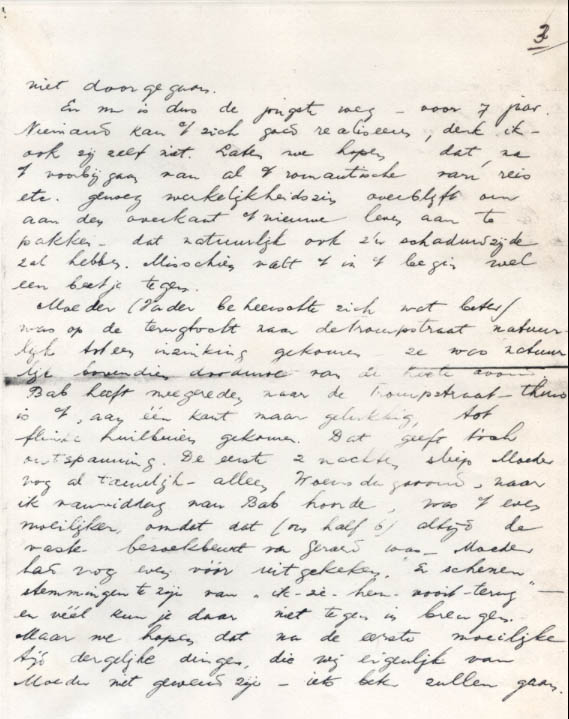 3
niet doorgegaan.
En nu is dus de jongste weg – voor 7 jaar.
Niemand kan 't zich goed realiseren, denk ik –
ook zij zelf niet. Laten we hopen dat, na
't voorbijgaan van al 't romantische van reis
etc. genoeg werkelijkheidszin overblijft om
aan den overkant 't nieuwe leven aan te
pakken – dat natuurlijk ook z'n schaduwzijde
zal hebben. Misschien valt 't in 't begin wel
een beetje tegen.
Moeder (Vader beheerschte zich wat beter)
was op de terugtocht naar de Trompstraat natuur-
lijk tot een inzinking gekomen – ze was natuur
lijk bovendien doodmoe van de heele avond.
Bab heeft meegereden naar de Trompstraat – thuis
is 't, aan één kant maar gelukkig, tot
flinke huilbuien gekomen. Dat geeft toch
ontspanning. De eerste 2 nachten sliep Moeder
nog al tamelijk – alleen Woensdagavond, naar
ik vanmiddag van Bab hoorde, was 't even
moeilijker, omdat dat (om half 6) altijd de
vaste bezoekbeurt van Gerard was – Moeder
had nog even vóór uitgekeken. Er schenen
stemmingen te zijn van „ik-zie-hen-nooit-terug" –
en véél kun je daar niet tegen in brengen.
Maar we hopen dat na de eerste moeilijke
tijd dergelijke dingen, die wij eigenlijk van
Moeder niet gewend zijn – iets beter zullen gaan.